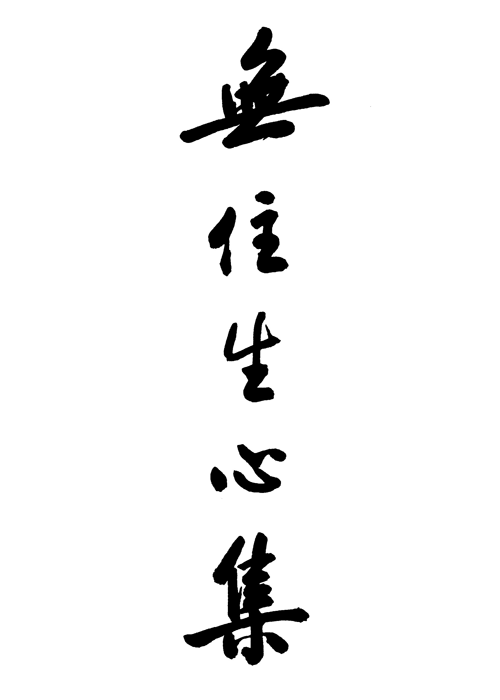 無住生心集